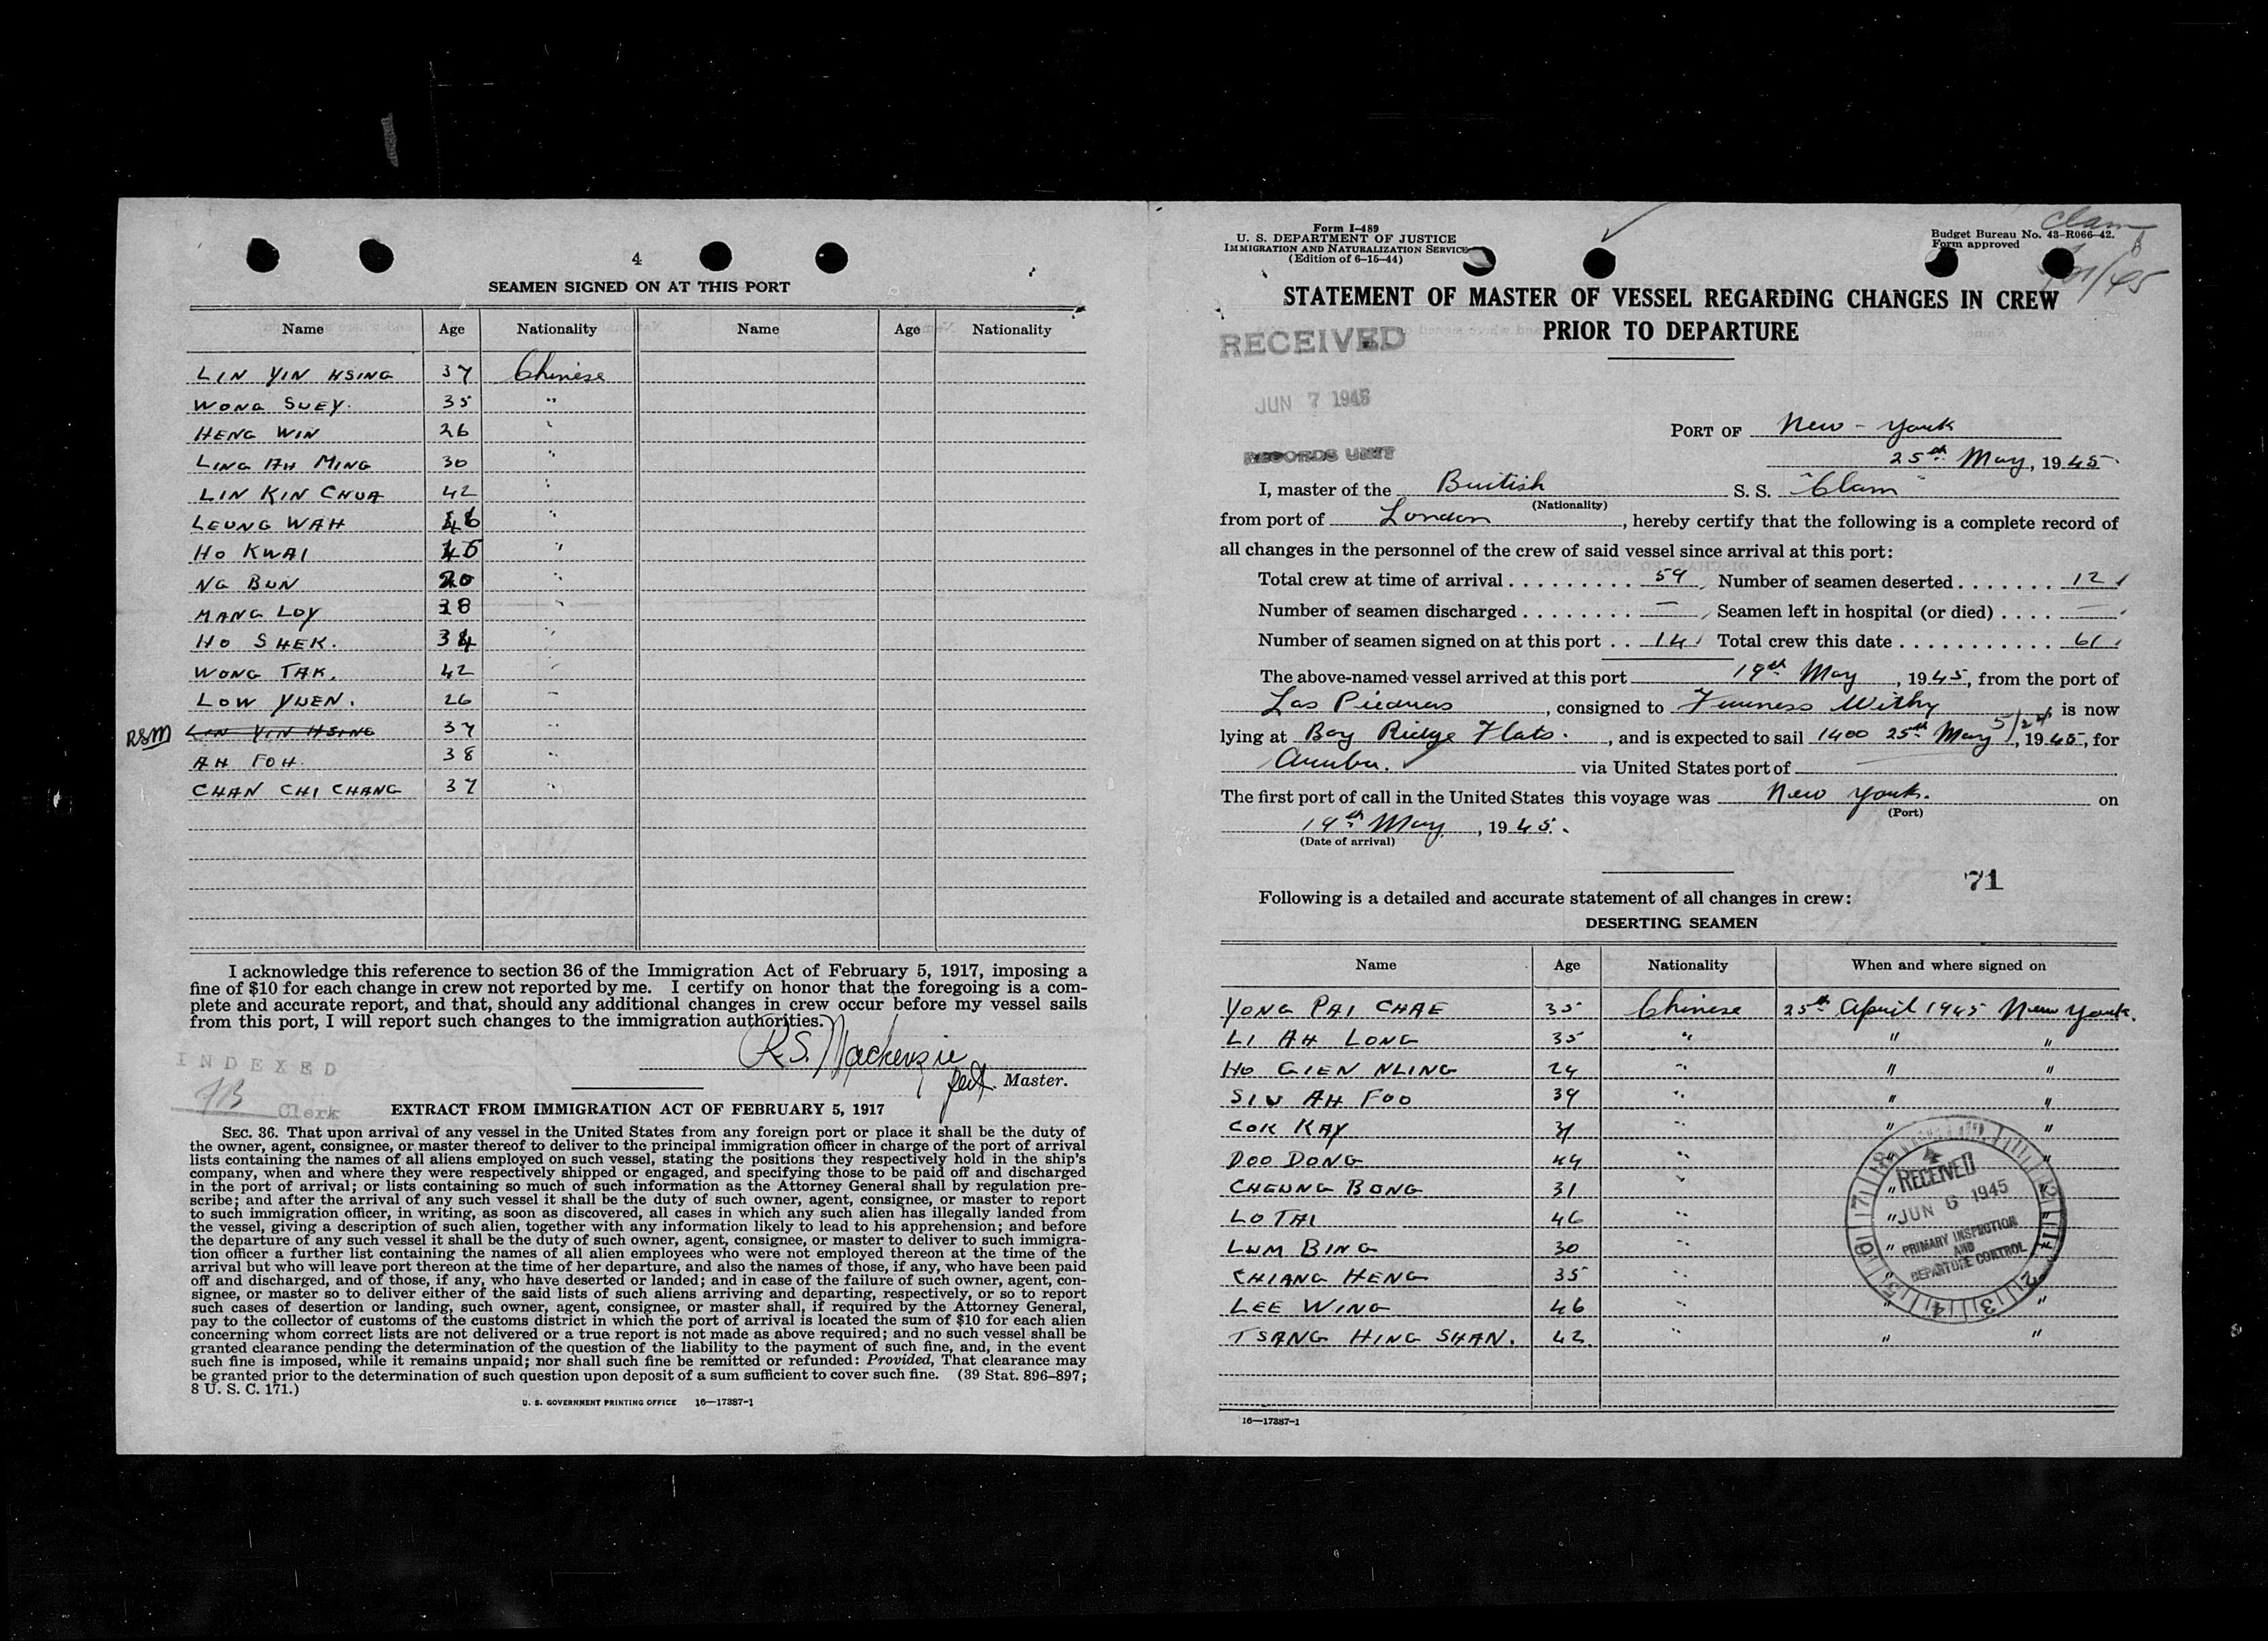 4
SEAMEN SIGNED ON AT THIS PORT
Name Age Nationality Name Age Nationality
LIN YIN HSING 37 Chinese
WONG SUEY. 35 "
HENG WIN 26 "
LING AH MING 30 "
LIN KIN CHUA 42 "
LEUNG WAH 46 "
HO KWAI 45 "
NG BUN 20 "
MANG LOY 38 "
HO SHEK. 34 "
WONG TAK. 42 "
LOW YUEN. 26 "
RSM LIN YIN HSING 37 "
AH FOH. 38 "
CHAN CHI CHANG 37 "
I acknowledge this reference to section 36 of the Immigration Act of February 5, 1917, imposing a
fine of $10 for each change in crew not reported by me. I certify on honor that the foregoing is a com-
plete and accurate report, and that, should any additional changes in crew occur before my vessel sails
from this port, I will report such changes to the immigration authorities.
R.S. Mackenzie
Master.
INDEXED
Clerk
EXTRACT FROM IMMIGRATION ACT OF FEBRUARY 5, 1917
SEC. 36. That upon arrival of any vessel in the United States from any foreign port or place it shall be the duty of
the owner, agent, consignee, or master thereof to deliver to the principal immigration officer in charge of the port of arrival
lists containing the names of all aliens employed on such vessel, stating the positions they respectively hold in the ship's
company, when and where they were respectively shipped or engaged, and specifying those to be paid off and discharged
in the port of arrival; or lists containing so much of such information as the Attorney General shall by regulation pre-
scribe; and after the arrival of any such vessel it shall be the duty of such owner, agent, consignee, or master to report
to such immigration officer, in writing, as soon as discovered, all cases in which any such alien has illegally landed from
the vessel, giving a description of such alien, together with any information likely to lead to his apprehension; and before
the departure of any such vessel it shall be the duty of such owner, agent, consignee, or master to deliver to such immigra-
tion officer a further list containing the names of all alien employees who were not employed thereon at the time of the
arrival but who will leave port thereon at the time of her departure, and also the names of those, if any, who have been paid
off and discharged, and of those, if any, who have deserted or landed; and in case of the failure of such owner, agent, con-
signee, or master so to deliver either of the said lists of such aliens arriving and departing, respectively, or so to report
such cases of desertion or landing, such owner, agent, consignee, or master shall, if required by the Attorney General,
pay to the collector of customs of the customs district in which the port of arrival is located the sum of $10 for each alien
concerning whom correct lists are not delivered or a true report is not made as above required; and no such vessel shall be
granted clearance pending the determination of the question of the liability to the payment of such fine, and, in the event
such fine is imposed, while it remains unpaid; nor shall such fine be remitted or refunded: Provided, That clearance may
be granted prior to the determination of such question upon deposit of a sum sufficient to cover such fine. (39 Stat. 896–897;
8 U. S. C. 171.)
U. S. GOVERNMENT PRINTING OFFICE 16—17387-1
Form I–489
U. S. DEPARTMENT OF JUSTICE
IMMIGRATION AND NATURALIZATION SERVICE
(Edition of 6–15–44)
Clam
Budget Bureau No. 43–R066–42.
Form approved
STATEMENT OF MASTER OF VESSEL REGARDING CHANGES IN CREW
PRIOR TO DEPARTURE
RECEIVED
JUN 7 1945
RECORDS UNIT
PORT OF New - York
25th May, 1945
I, master of the British S. S. "Clam"
(Nationality)
from port of London, hereby certify that the following is a complete record of
all changes in the personnel of the crew of said vessel since arrival at this port:
Total crew at time of arrival 59 Number of seamen deserted 12
Number of seamen discharged — Seamen left in hospital (or died) —
Number of seamen signed on at this port 14 Total crew this date 61
The above-named vessel arrived at this port 19th May, 1945, from the port of
Las Piedras, consigned to Furness Withy is now
lying at Bay Ridge Flats., and is expected to sail 1400 25th May 5/24, 1945, for
Aruba. via United States port of
The first port of call in the United States this voyage was New York. on
(Port)
19th May, 1945.
(Date of arrival)
71
Following is a detailed and accurate statement of all changes in crew:
DESERTING SEAMEN
Name Age Nationality When and where signed on
YONG PAI CHAE 35 Chinese 25th April 1945 New York.
LI AH LONG 35 " " "
HO GIEN NLING 24 " " "
SIU AH FOO 39 " " "
COK KAY 31 " " "
DOO DONG 44 " " "
CHEUNG BONG 31 " " "
LO TAI 46 " " "
LUM BING 30 " " "
CHIANG HENG 35 " "
LEE WING 46 " " "
TSANG HING SHAN. 42 " " "
RECEIVED
JUN 6 1945
PRIMARY INSPECTION
AND
DEPARTURE CONTROL
16—17387-1